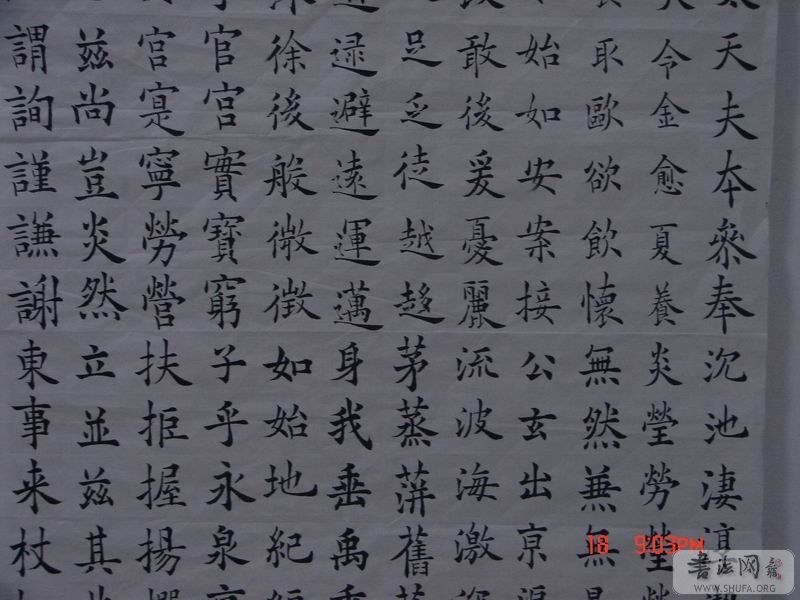 天夫本參奉沉池淒
令金愈夏養炎瑩勞塋
取歐欲飲懷無然兼無
始如安案接公玄出亰
敢後爰憂麗流波海激
足乏徒越趍茅蒸蓱舊
逯避遠運邁身我垂禹
徐後般微徵如始地紀
官宫實寶窮子乎永泉
宮寔寧勞營扶拒握揚
茲尚豈炎然立並茲其
謂詢謹謙謝東事来杖
18 9:03PM
书法网
WWW.SHUFA.ORG